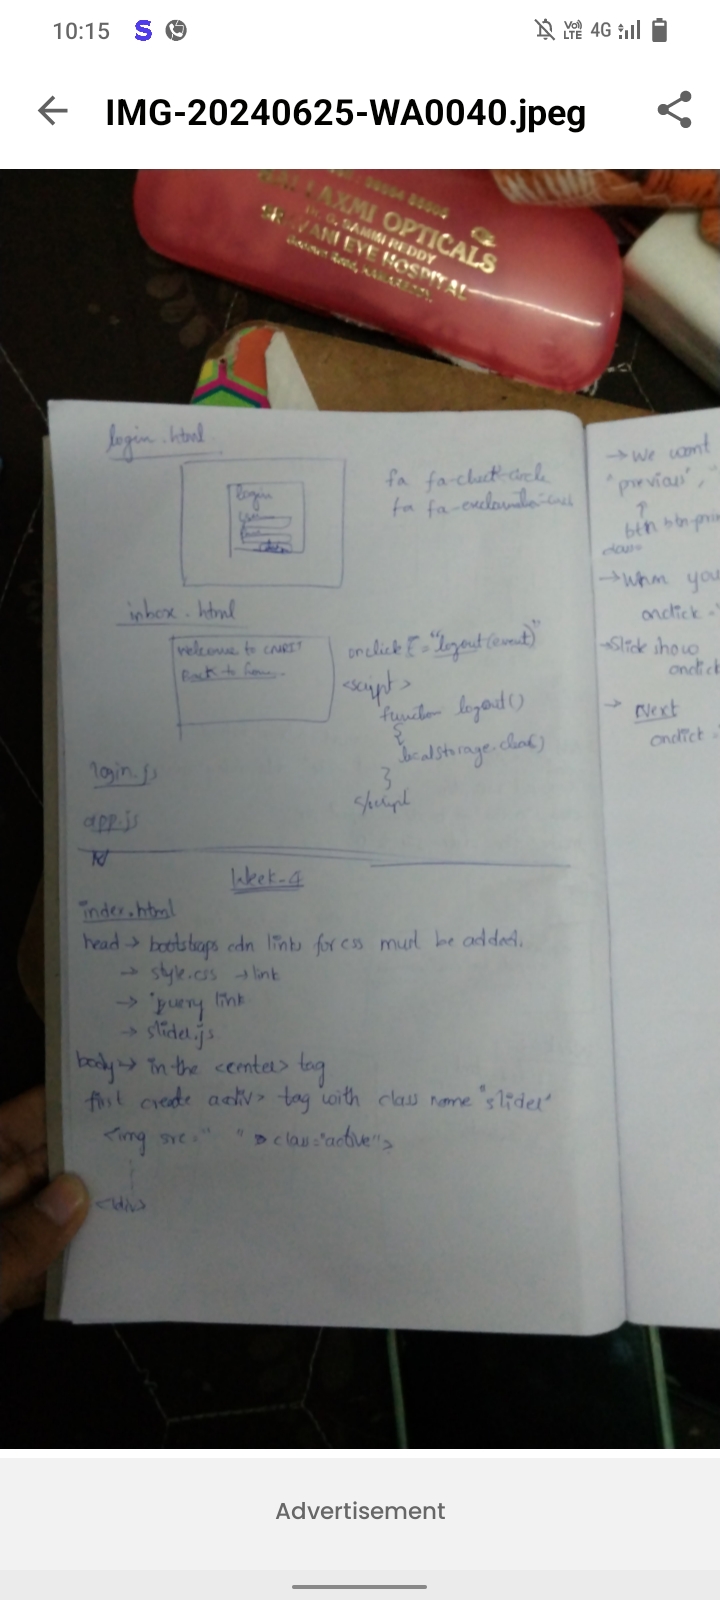 10:15
VoI) LTE 4G
IMG-20240625-WA0040.jpeg
LAXMI OPTICALS
Dr. G. SAMMI REDDY
SRAVANI EYE HOSPITAL
login.html
login
fa fa-check-circle
fa fa-exclamation-circle
inbox.html
welcome to
Back to
onclick = "logout(event)"
<script>
function logout()
{
localstorage.clear()
}
</script
login.js
app.js
Week-4
index.html
head → bootstraps cdn links for css must be added.
→ style.css → link
→ query link
→ slider.js
body → in the <center> tag
first create a <div> tag with class name "slider"
<img src=" " class="active">
</div>
→ We want
"previous", "
btn btn-prim
class=
→ When you
onclick = "
→ Slide show
onclick
→ Next
onclick = "
Advertisement